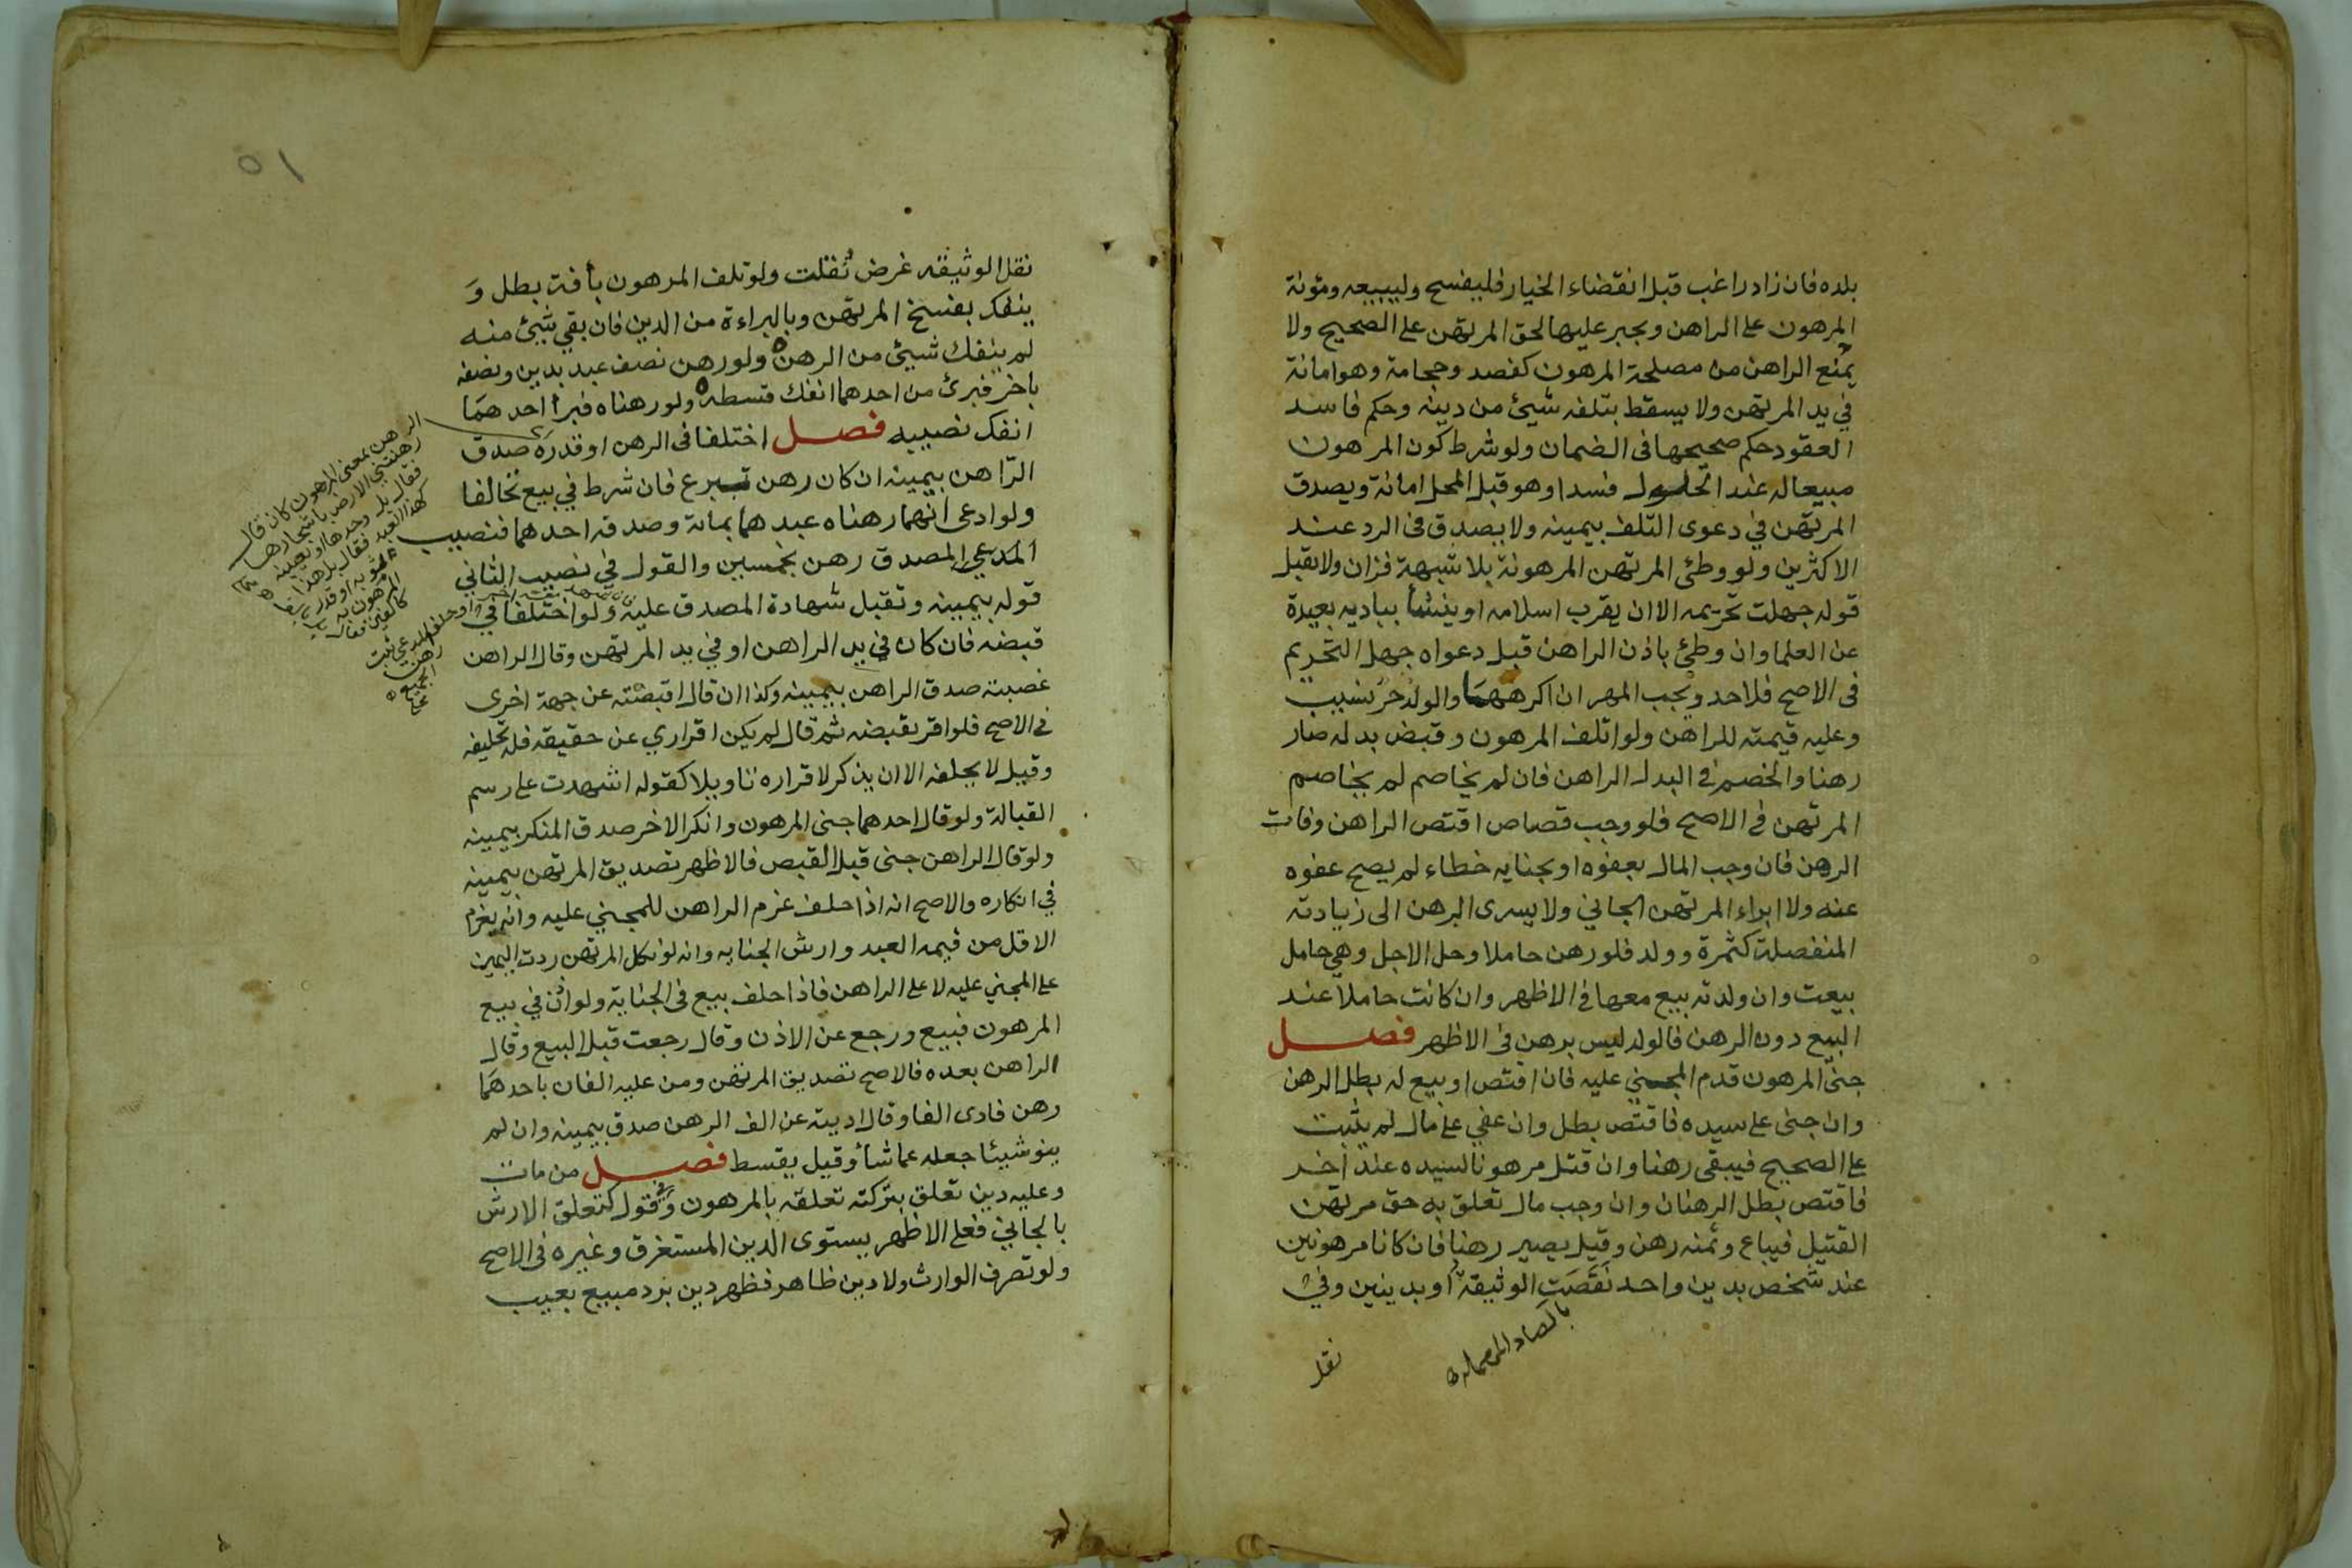 بلده فان زاد راغب قبل انقضاء الخيار فليفسخ وليبيعه ومؤنة
المرهون على الراهن ويجبر عليها لحق المرتهن على الصحيح ولا
يمنع الراهن من مصلحة المرهون كفصد وحجامة وهو امانة
في يد المرتهن ولا يسقط بتلفه شيئ من دينه وحكم فاسد
العقود حكم صحيحها فى الضمان ولو شرط كون المرهون
مبيعا له عند الحلول فسدا وهو قبل المحل امانة ويصدق
المرتهن في دعوى التلف بيمينه ولا يصدق فى الرد عند
الاكثرين ولو وطئ المرتهن المرهونة بلا شبهة فزان ولا تقبل
قوله جهلت تحريمه الا ان يقرب اسلامه او ينشأ بباديه بعيدة
عن العلما وان وطئ باذن الراهن قبل دعواه جهل التحريم
فى الاصح فلا حد ويجب المهر ان اكرهها والولد حر نسيب
وعليه قيمته للراهن ولو اتلف المرهون وقبض بدله صار
رهنا والخصم في البدل الراهن فان لم يخاصم لم يخاصم
المرتهن في الاصح فلو وجب قصاص اقتص الراهن وفات
الرهن فان وجب المال بعفوه او بجنايه خطاء لم يصح عفوه
عنه ولا ابراء المرتهن الجاني ولا يسرى الرهن الى زيادته
المنفصلة كثمرة وولد فلو رهن حاملا وحل الاجل وهي حامل
بيعت وان ولدته بيع معها في الاظهر وان كانت حاملا عند
البيع دون الرهن فالولد ليس برهن فى الاظهر فصل
جنى المرهون قدم المجني عليه فان اقتص او بيع له بطل الرهن
وان جنى على سيده فاقتص بطل وان عفي على مال لم يثبت
على الصحيح فيبقى رهنا وان قتل مرهونا لسيده عند اخر
فاقتص بطل الرهنان وان وجب مال تعلق به حق مرتهن
القتيل فيباع وثمنه رهن وقيل يصير رهنا فان كانا مرهونين
عند شخص بدين واحد نقصت الوثيقة او بدينين وفي
بالصاد المهملة
نقل
٥١
نقل الوثيقه غرض نُقلت ولو تلف المرهون بأفة بطل وَ
ينفك بفسخ المرتهن وبالبراءة من الدين فان بقي شيئ منه
لم ينفك شيئ من الرهن ولو رهن نصف عبد بدين ونصفه
باخر فبرئ من احدهما انفك قسطه ولو رهناه فبرأ احدهما
انفك نصيبه فصل اختلفا فى الرهن او قدره صدق
الراهن بيمينه ان كان رهن تبرع فان شرط في بيع تخالفا
ولو ادعى انهما رهناه عبدهما بمائة وصدقه احدهما فنصيب
المدعي المصدق رهن بخمسين والقول في نصيب الثاني
قوله بيمينه وتقبل شهادة المصدق عليه ولو اختلفا في
قبضه فان كان في يد الراهن او في يد المرتهن وقال الراهن
غصبته صدق الراهن بيمينه وكذا ان قال اقبضته عن جهة اخرى
في الاصح فلو اقر بقبضه ثم قال لم يكن اقراري عن حقيقه فله تحليفه
وقيل لا يحلفه الا ان يذكر لاقراره تاويلا كقوله اشهدت على رسم
القبالة ولو قال احدهما جنى المرهون وانكر الاخر صدق المنكر بيمينه
ولو قال الراهن جنى قبل القبض فالاظهر تصديق المرتهن بيمينه
في انكاره والاصح انه اذا حلف غرم الراهن للمجني عليه وانه يغرم
الاقل من قيمه العبد وارش الجنايه وانه لو نكل المرتهن ردت اليمين
على المجني عليه لا على الراهن فاذا حلف بيع فى الجناية ولو اذن في بيع
المرهون فبيع ورجع عن الاذن وقال رجعت قبل البيع وقال
الراهن بعده فالاصح تصديق المرتهن ومن عليه الفان باحدهما
رهن فادى الفا وقال اديته عن الف الرهن صدق بيمينه وان لم
ينو شيئا جعله عما شأ وقيل يقسط فصل من مات
وعليه دين تعلق بتركته تعلقه بالمرهون وفي قول كتعلق الارش
بالجاني فعلى الاظهر يستوى الدين المستغرق وغيره فى الاصح
ولو تصرف الوارث ولا دين ظاهر فظهر دين برد مبيع بعيب
الرهن بمعنى المرهون كان قال
رهنتني الارض باشجارها
فقال بل وحدها او تعيينه
كهذا العبد فقال بل هذا
المرهون به
كالفين فقال